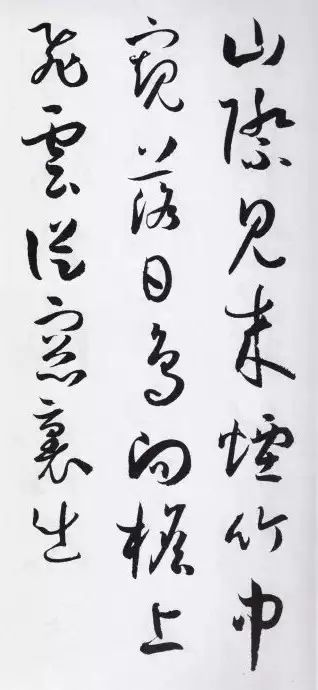 山際見來煙竹中
窺落日鳥向檐上
飛雲從窗裏出